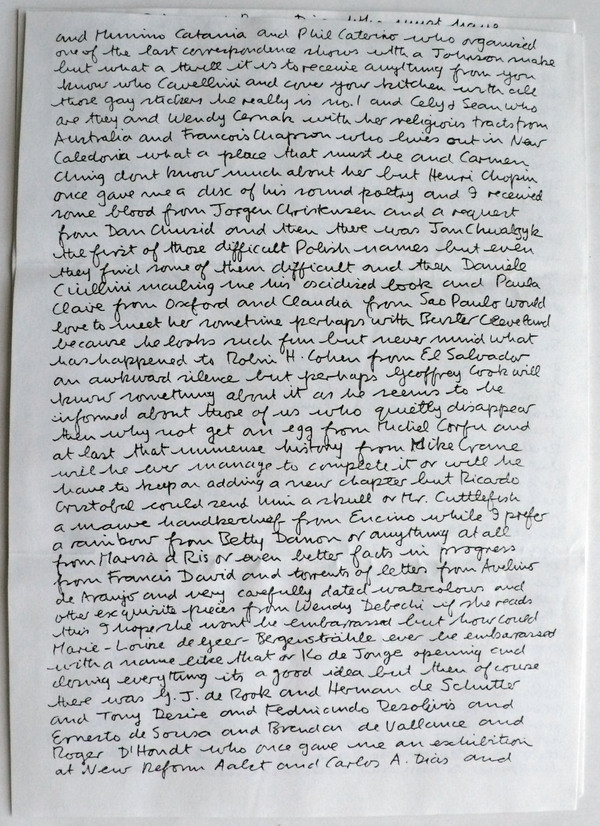 and Mimmo Catania and Phil Caterino who organised
one of the last correspondence shows with a Johnson snake
but what a thrill it is to receive anything from you
know who Cavellini and cover your kitchen with all
those gay stickers he really is no. 1 and Cely & Sean who
are they and Wendy Cernak with her religious tracts from
Australia and Francois Chapron who lives out in New
Caledonia what a place that must be and Carmen
Ching dont know much about her but Henri Chopin
once gave me a disc of his sound poetry and I received
some blood from Jorgen Christensen and a request
from Dan Chusid and then there was Jan Chwalczyk
the first of those difficult Polish names but even
they find some of them difficult and then Daniele
Ciullini mailing me his oxidised book and Paula
Claire from Oxford and Claudia from Sao Paulo would
love to meet her sometime perhaps with Buster Cleveland
because he looks such fun but never mind what
has happened to Robin H. Cohen from El Salvador
an awkward silence but perhaps Geoffrey Cook will
know something about it as he seems to be
informed about those of us who quietly disappear
then why not get an egg from Michel Corfu and
at last that immense history from Mike Crane
will he ever manage to complete it or will he
have to keep on adding a new chapter but Ricardo
Cristobal could send him a skull or Mr. Cuttlefish
a mauve handkerchief from Encino while I prefer
a rainbow from Betty Danon or anything at all
from Marisa d Ris or even better facts in progress
from Francis David and torrents of letters from Avelino
de Araujo and very carefully dated watercolours and
other exquisite pieces from Wendy Debechi if she reads
this I hope she wont be embarrassed but how could
Marie-Louise de Geer-Bergenstråhle ever be embarrassed
with a name like that or Ko de Jonge opening and
closing everything its a good idea but then of course
there was G. J. de Rook and Herman de Schutter
and Tony Desire and Fedmiando Desolivis and
Ernesto de Sousa and Brendan de Vallance and
Roger D'Hondt who once gave me an exhibition
at New Reform Aalst and Carlos A. Dias and